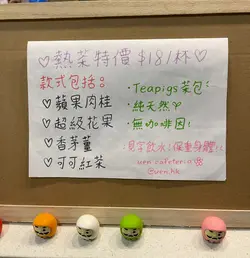 ♡熱茶特價 $18/杯♡
款式包括:
♡蘋果肉桂
♡超級花果
♡香茅薑
♡可可紅茶
·Teapigs茶包
·純天然♡
·無咖啡因
見字飲水,保重身體
uen cafeteria
@uen.hk